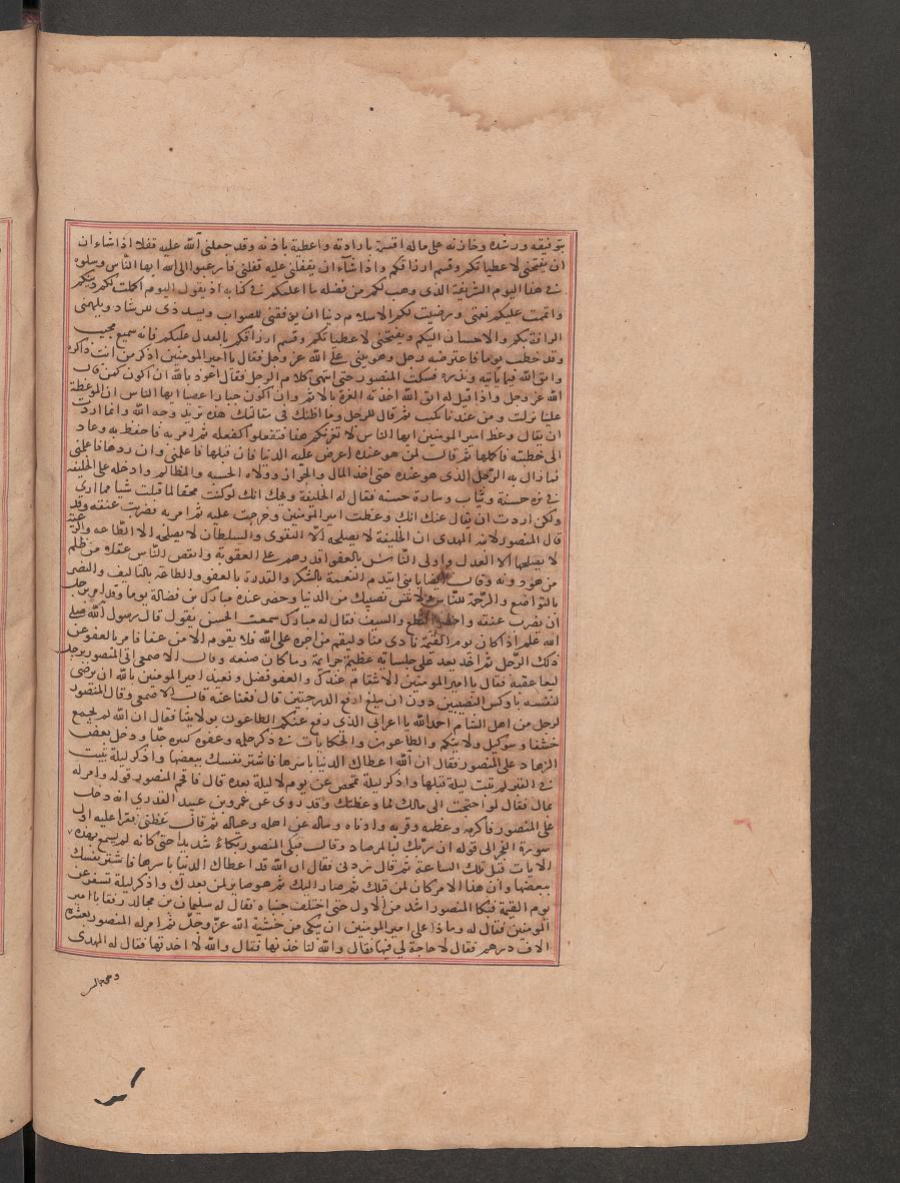 بتوفيقه ورشده وخازنه على ماله اقسمه بارادته واعطيه باذنه وقد جعلنى الله عليه قفلا اذا شاء ان
ان يفتحنى لاعطياتكم وقسم ارزاقكم واذا شآء ان يقفلنى عليه قفلنى فارغبوا الى الله ايها النّاس وسلوه
فى هذا اليوم الشريف الذى وهب لكم من فضله ما اعلمكم فى كتابه اذ يقول اليوم اكملت لكم دينكم
واتممت عليكم نعمتى ورضيت لكم الاسلام دينا ان يوفقنى للصواب ويسددنى للرشاد ويلهمنى
الرافة بكم والاحسان اليكم ويفتحنى لاعطياتكم وقسم ارزاقكم بالعدل عليكم فانه سميع مجيب
وقد خطب يوما فاعترضه رجل وهو يثنى على الله عز وجل فقال يا امير المومنين اذكر من انت ذاكره
واتق الله فيما ياتيه وتذره فسكت المنصور حتى انتهى كلام الرجل فقال اعوذ بالله ان اكون كمن قال
الله عز وجل واذا قيل له اتق الله اخذته العزة بالاثم وان اكون جبارا عصيا ايها الناس ان الموعظة
علينا نزلت ومن عندنا كتبت ثم قال للرجل وما اظنك فى مقالتك هذه تريد وجه الله وانما اردت
ان يقال وعظ امير المومنين ايها الناس لا يغرنكم هذا فتفعلوا كفعله ثم امر به فاحتفظ به وعاد
الى خطبته فاكملها ثم قال لمن هو عنده اعرض عليه الدنيا فان قبلها فاعلمنى وان ردها فاعلمنى
فما زال به الرّجل الذى هو عنده حتى اخذ المال والجوار وولاه الحسبه والمظالم وادخله على الخليفه
فى بزه حسنة وثياب وسادة حسنه فقال له الخليفة ويحك انك لو كنت محقا لما قبلت شيا مما ارى
ولكن اردت ان يقال عنك انك وعظت امير المومنين وخرجت عليه ثم امر به فضربت عنقه وقد
قال المنصور لابنه المهدى ان الخليفة لا يصلحه الا التقوى والسلطان لا يصلحه الا الطاعه والرعية
لا يصلحها الا العدل واولى النّاس بالعفو اقدرهم على العقوبة وانقص النّاس عقلا من ظلم
من هو دونه وقال ايضا يا بنى استدم النعمة بالشكر والقدرة بالعفو والطاعه بالتاليف والنصر
بالتواضع والرحمة للنّاس ولا تنس نصيبك من الدنيا وحضر عنده مبارك بن فضالة يوما وقد امر برجل
ان يضرب عنقه واحضر النطع والسيف فقال له مبارك سمعت الحسن يقول قال رسول الله صلى
الله علم اذا كان يوم القيمة نادى مناد ليقم من اجره على الله فلا يقوم الا من عفا فامر بالعفو عن
ذلك الرّجل ثم اخذ يعد على جلسائه عظيم جرايمه وما كان صنعه وقال الاصمعى اتى المنصور برجل
ليعاقبه فقال يا امير المومنين الانتقام عدل والعفو فضل ونعيذ امير المومنين بالله ان يرضى
لنفسه باوكس النصيبين دون ان يبلغ ارفع الدرجتين قال فعفا عنه قال الاصمعى وقال المنصور
لرجل من اهل الشام احمد الله يا اعرابى الذى رفع عنكم الطاعون بولايتنا فقال ان الله لم يجمع
حشفا وسوكيل ولايتكم والطاعون والحكايات فى ذكر حلمه وعفوه كثيره جدّا ودخل بعض
الزهاد على المنصور فقال ان الله اعطاك الدنيا باسرها فاشتر نفسك ببعضها واذكر ليلة تبيت
فى القبر لم تبت ليلة قبلها واذكر ليلة تمخض عن يوم لا ليلة بعده قال فافحم المنصور قوله وامر له
بمال فقال لو احتجت الى مالك لما وعظتك وقد روى عن عمرو بن عبيد القدرى انه دخل
على المنصور فاكرمه وعظمه وقربه وادناه وساله عن اهله وعياله ثم قال عظنى فقرا عليه اول
سورة الفجر الى قوله ان ربّك لبالمرصاد وقال فبكى المنصور بكاءً شديدا حتى كانه لم يسمع بهذه
الايات قبل تلك الساعة ثم قال زدنى فقال ان الله قد اعطاك الدنيا باسرها فاشتر نفسك
ببعضها وان هذا الامر كان لمن قبلك ثم صار اليك ثم هو صاير لمن بعدك واذكر ليلة تسفر عن
يوم القيمة فبكا المنصور اشد من الاول حتى اختلف جنباه فقال له سليمان بن مجالد رفقا يا امير
المومنين فقال له وماذا على امير المومنين ان يبكى من خشية الله عزّ وجلّ ثم امر له المنصور بعشره
الاف درهم فقال لا حاجة لى فيها فقال والله لتاخذنها فقال والله لا اخذتها فقال له المهدى